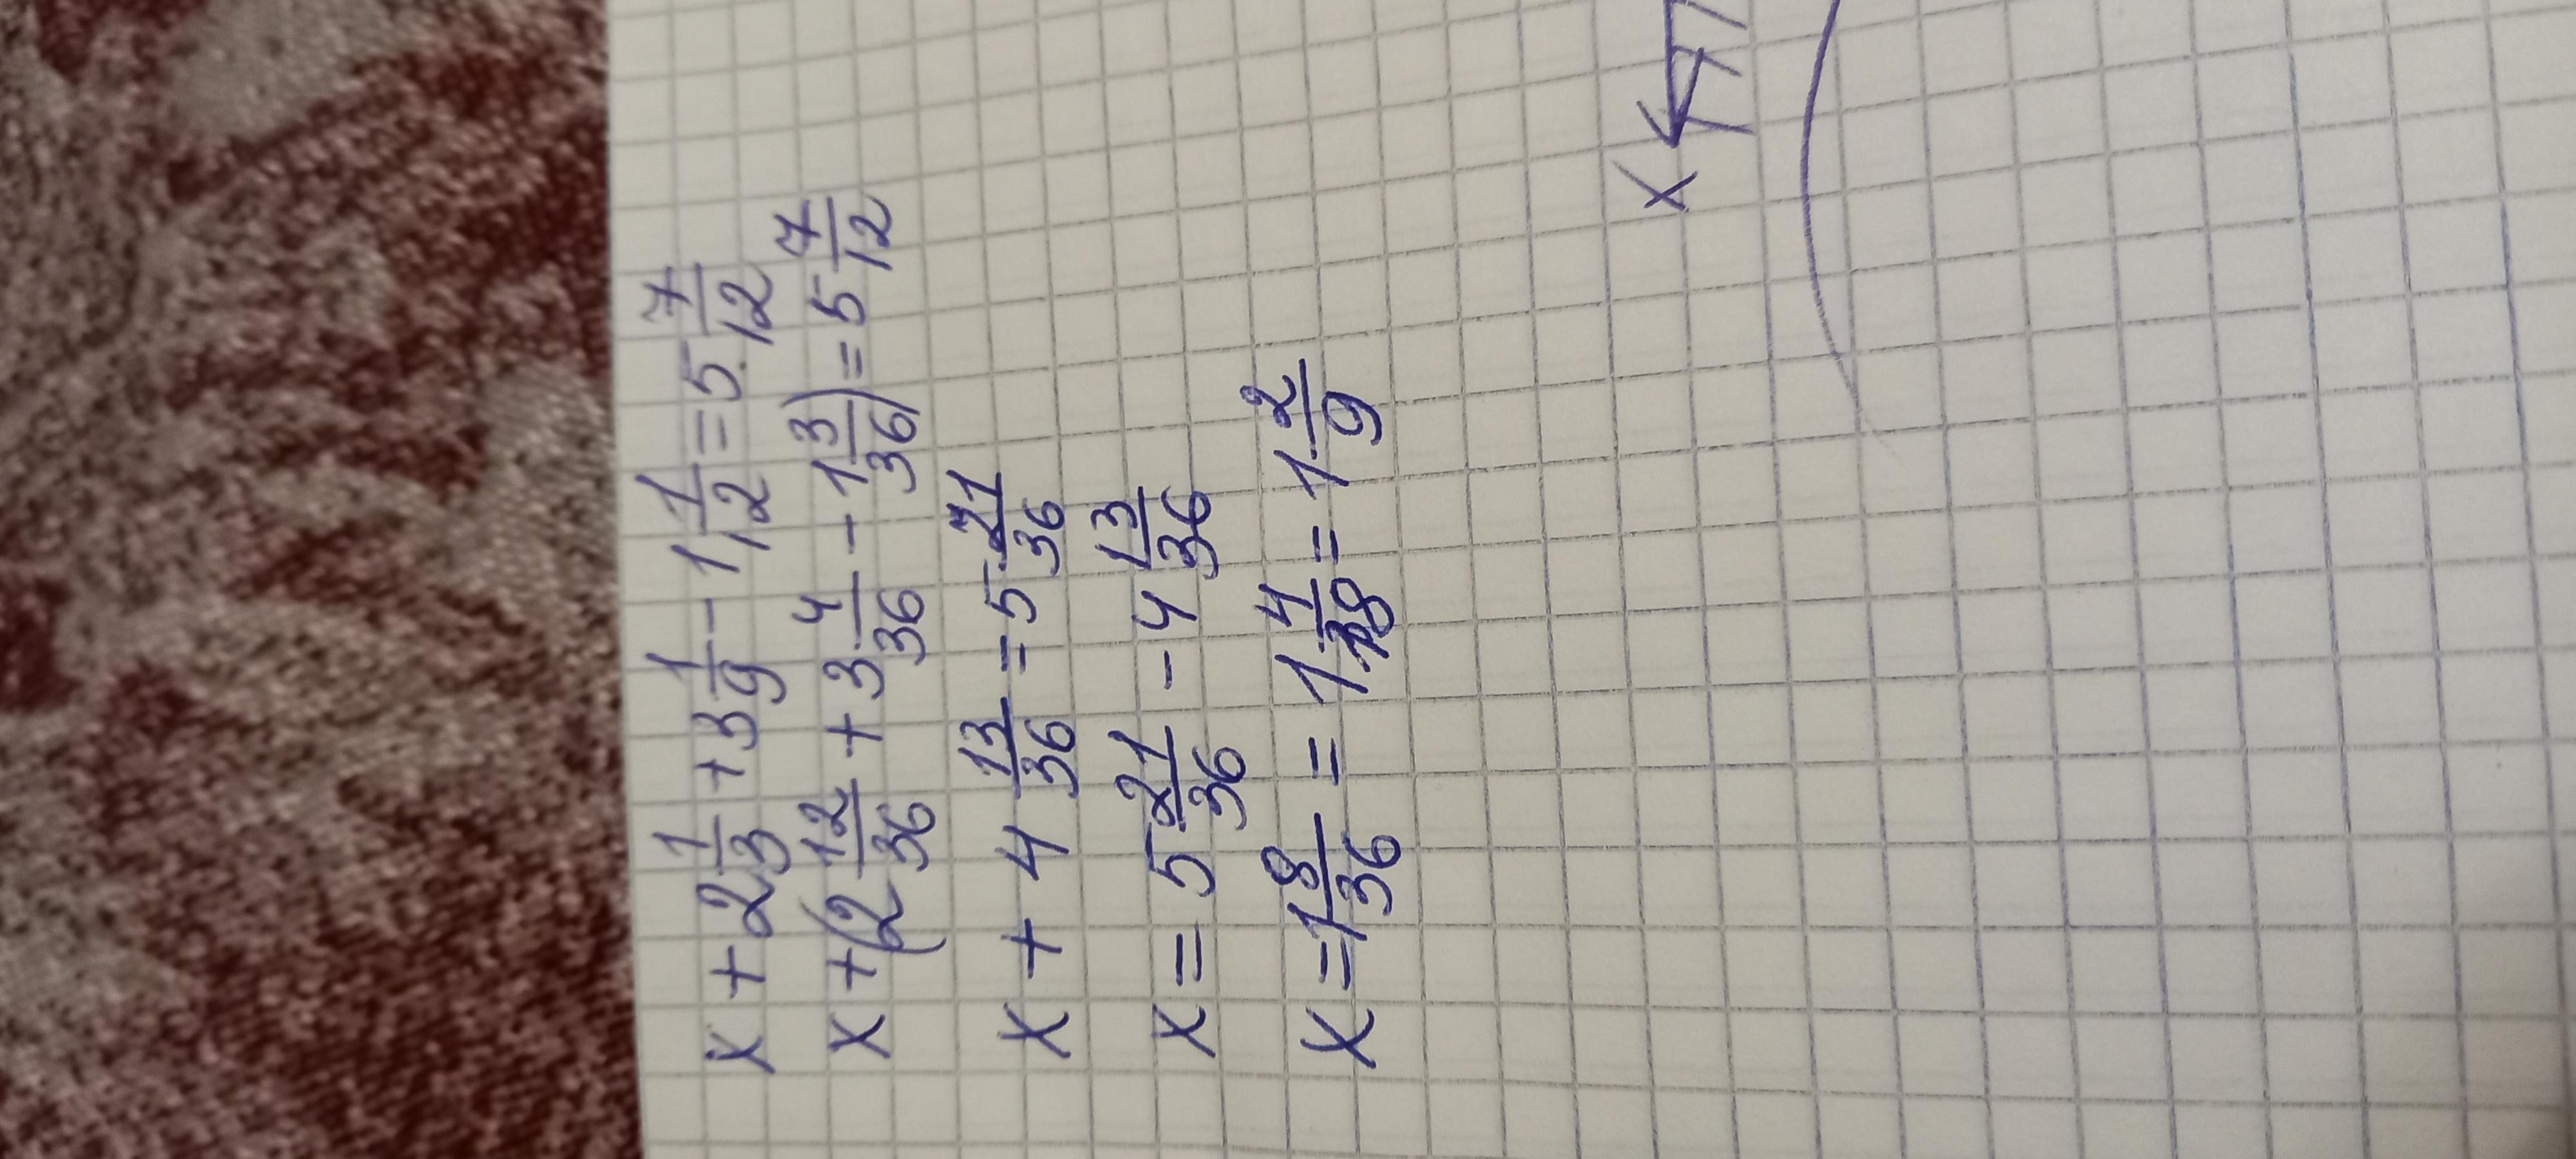 x + 2 1/3 + 3 1/9 - 1 1/12 = 5 7/12
x + (2 12/36 + 3 4/36 - 1 3/36) = 5 7/12
x + 4 13/36 = 5 21/36
x = 5 21/36 - 4 13/36
x = 1 8/36 = 1 4/18 = 1 2/9
x